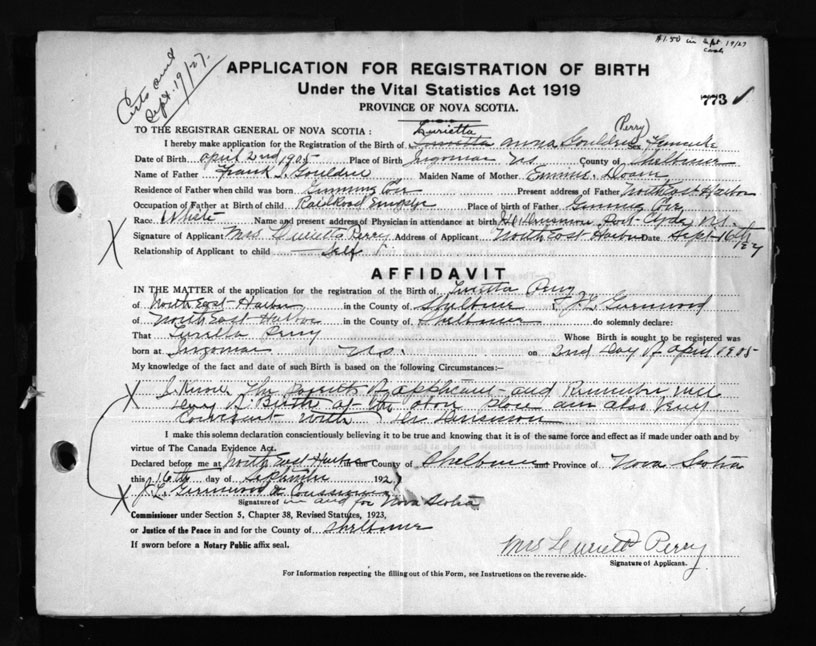 $1.50 in Sept 19/27
Certs and
Sept. 19/27.
APPLICATION FOR REGISTRATION OF BIRTH
Under the Vital Statistics Act 1919
PROVINCE OF NOVA SCOTIA.
773
TO THE REGISTRAR GENERAL OF NOVA SCOTIA: Lurietta (Perry)
I hereby make application for the Registration of the Birth of Anna Gouldrie Sex Female
Date of Birth April 2nd 1905 Place of Birth Ingomar NS County of Shelburne
Name of Father Frank Gouldrie Maiden Name of Mother Doane
Residence of Father when child was born Present address of Father North East Harbor
Occupation of Father at Birth of Child Railroad Place of birth of Father
Race White Name and present address of Physician in attendance at birth Port Clyde N.S.
Signature of Applicant Mrs Lurietta Perry Address of Applicant North East Harbor Date Sept 16th /27
Relationship of Applicant to child Self
AFFIDAVIT
IN THE MATTER of the application for the registration of the Birth of Lurietta Perry
of North East Harbor in the County of Shelburne
of North East Harbor in the County of Shelburne do solemnly declare:
That Luretta Perry Whose Birth is sought to be registered was
born at Ingomar N.S. on 2nd Day of April 1905
My knowledge of the fact and date of such Birth is based on the following Circumstances:—
I know the parents of applicant and Remember well
of Birth at the above place am also very
with
I make this solemn declaration conscientiously believing it to be true and knowing that it is of the same force and effect as if made under oath and by
virtue of The Canada Evidence Act.
Declared before me at North East Harbor in the County of Shelburne and Province of Nova Scotia
this 16th day of September 192
J. L.
Signature of in and for Nova Scotia
Commissioner under Section 5, Chapter 38, Revised Statutes, 1923,
or Justice of the Peace in and for the County of Shelburne
If sworn before a Notary Public affix seal.
Mrs Luriett Perry
Signature of Applicants.
For Information respecting the filling out of this Form, see Instructions on the reverse side.